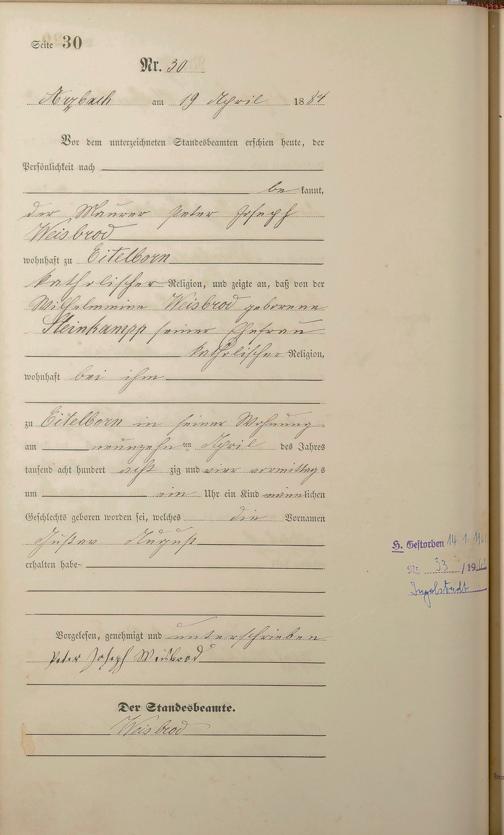 Seite 30
Nr. 30
Arzbach am 19 April 1884
Vor dem unterzeichneten Standesbeamten erschien heute, der
Persönlichkeit nach
be kannt,
der Maurer Peter Joseph
Weisbrod
wohnhaft zu Eitelborn
katholischer Religion, und zeigte an, daß von der
Wilhelmine Weisbrod geborene
Steinkampp seiner Ehefrau
katholischer Religion,
wohnhaft bei ihm
zu Eitelborn in seiner Wohnung
am neunzehn ten April des Jahres
tausend acht hundert acht zig und vier vormittags
um ein Uhr ein Kind männlichen
Geschlechts geboren worden sei, welches die Vornamen
August
erhalten habe
Vorgelesen, genehmigt und unterschrieben
Peter Joseph Weisbrod
Der Standesbeamte.
Weisbrod
H. Gestorben 14. 1.
Nr. 33 /19
Ingolstadt